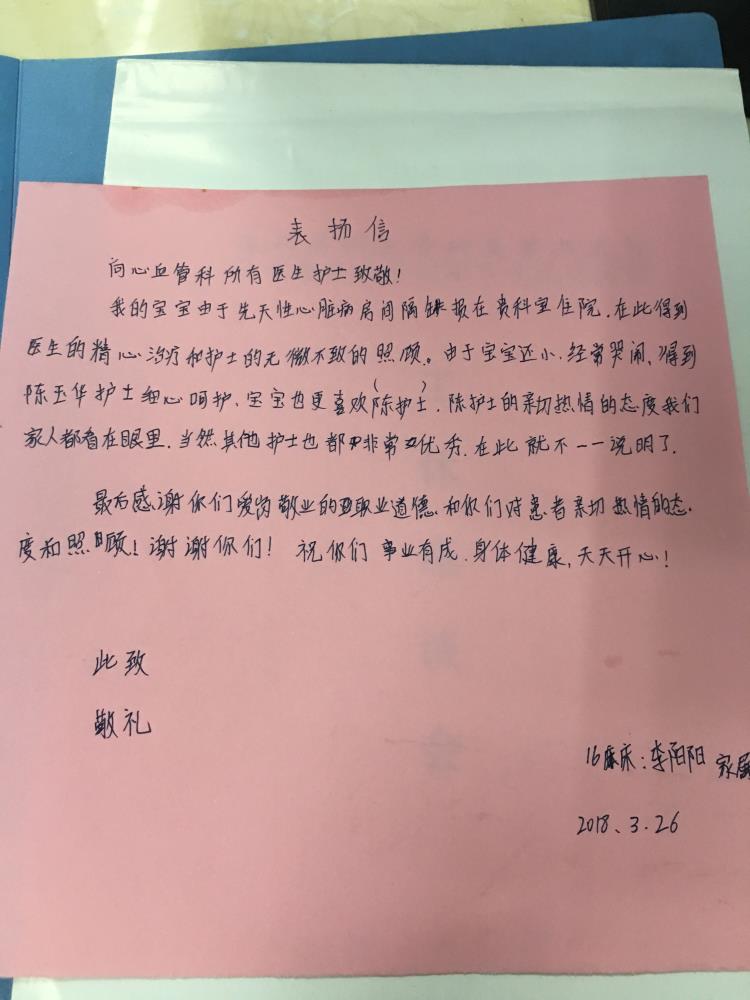 表扬信
向心血管科所有医生护士致敬!
我的宝宝由于先天性心脏病房间隔缺损在贵科室住院,在此得到
医生的精心治疗和护士的无微不致的照顾。由于宝宝还小,经常哭闹,得到
陈玉华护士细心呵护、宝宝也更喜欢(陈护士),陈护士的亲切热情的态度我们
家人都看在眼里.当然其他护士也都非常优秀.在此就不一一说明了.
最后感谢你们爱岗敬业的职业道德.和你们对患者亲切热情的态.
度和照顾!谢谢你们! 祝你们事业有成.身体健康,天天开心!
此致
敬礼
16床:李阳阳 家属
2018、3.26